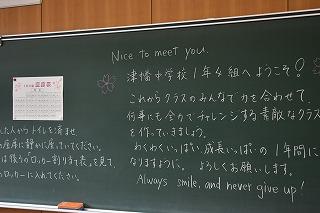 Nice to meet you.
津幡中学校1年4組へようこそ!
これからクラスのみんなで力を合わせて、
何事にも全力でチャレンジする素敵なクラス
を作っていきましょう。
わくわくいっぱい、成長いっぱいの1年間に
なりますように。よろしくお願いします。
Always smile, and never give up!
座席表
した人からトイレを済ませ
座席に静かに座っていてください。
は後ろの「ロッカー割りふり表」を見て、
ロッカーに入れてください。